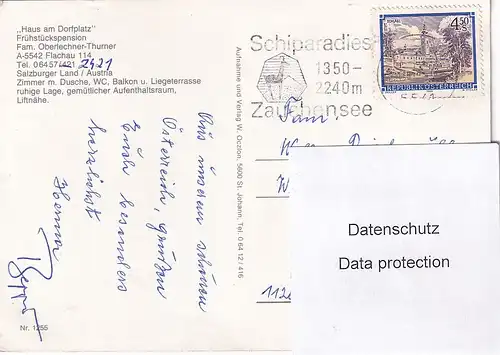 „Haus am Dorfplatz"
Frühstückspension
Fam. Oberlechner-Thurner
A-5542 Flachau 114
Tel. 06457/421 2421
Salzburger Land / Austria
Zimmer m. Dusche, WC, Balkon u. Liegeterrasse
ruhige Lage, gemütlicher Aufenthaltsraum,
Liftnähe.
Aus unserem schönen
Österreich, grüßen
Euch besonders
herzlichst
Nr. 1255
Aufnahme und Verlag W. Occlon, 5600 St. Johann, Tel. 0 64 12 / 416
Schiparadies
1350-
2240m
Zauchensee
4.50
REPUBLIK ÖSTERREICH
Fam.
W
112
Datenschutz
Data protection